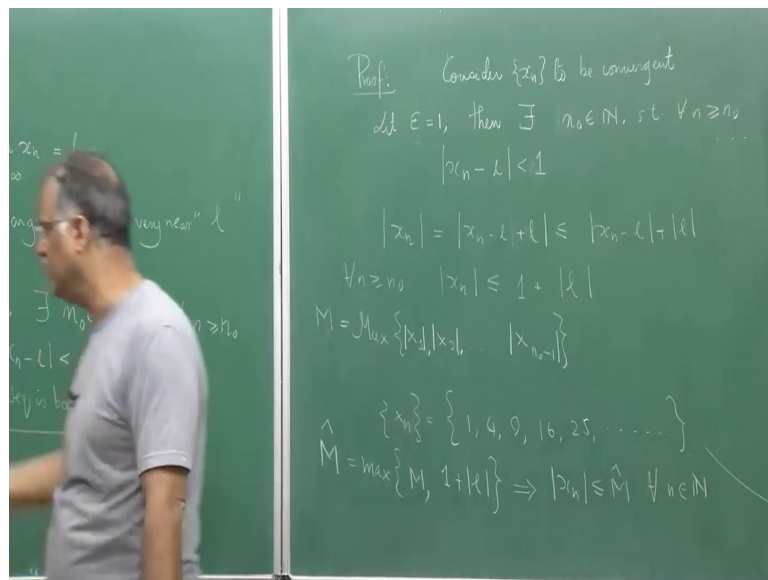 x_n = l
∞
very near" l
∃ n_0
n ≥ n_0
x_n - l| <
seq is
Proof: Consider {x_n} to be convergent
Let ε=1, then ∃ n_0 ∈ ℕ, s.t. ∀ n ≥ n_0
...
|x_n - l| < 1
|x_n| = |x_n - l + l| ≤ |x_n - l| + |l|
∀ n ≥ n_0 |x_n| ≤ 1 + |l|
M = Max {|x_1|, |x_2|, ... |x_{n_0-1}|}
{x_n} = {1, 4, 9, 16, 25, ......}
M̂ = max {M, 1+|l|} ⇒ |x_n| ≤ M̂ ∀ n ∈ ℕ